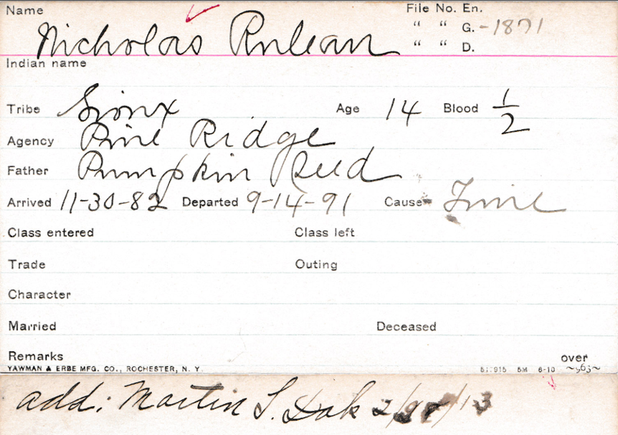 Name File No. En.
Nicholas Ruleau " " G. -1871
" " D.
Indian name
Tribe Sioux Age 14 Blood 1/2
Agency Pine Ridge
Father Pumpkin Seed
Arrived 11-30-82 Departed 9-14-91 Cause Time
Class entered Class left
Trade Outing
Character
Married Deceased
Remarks over
YAWMAN & ERBE MFG. CO., ROCHESTER, N. Y.
add: Martin S. Dak